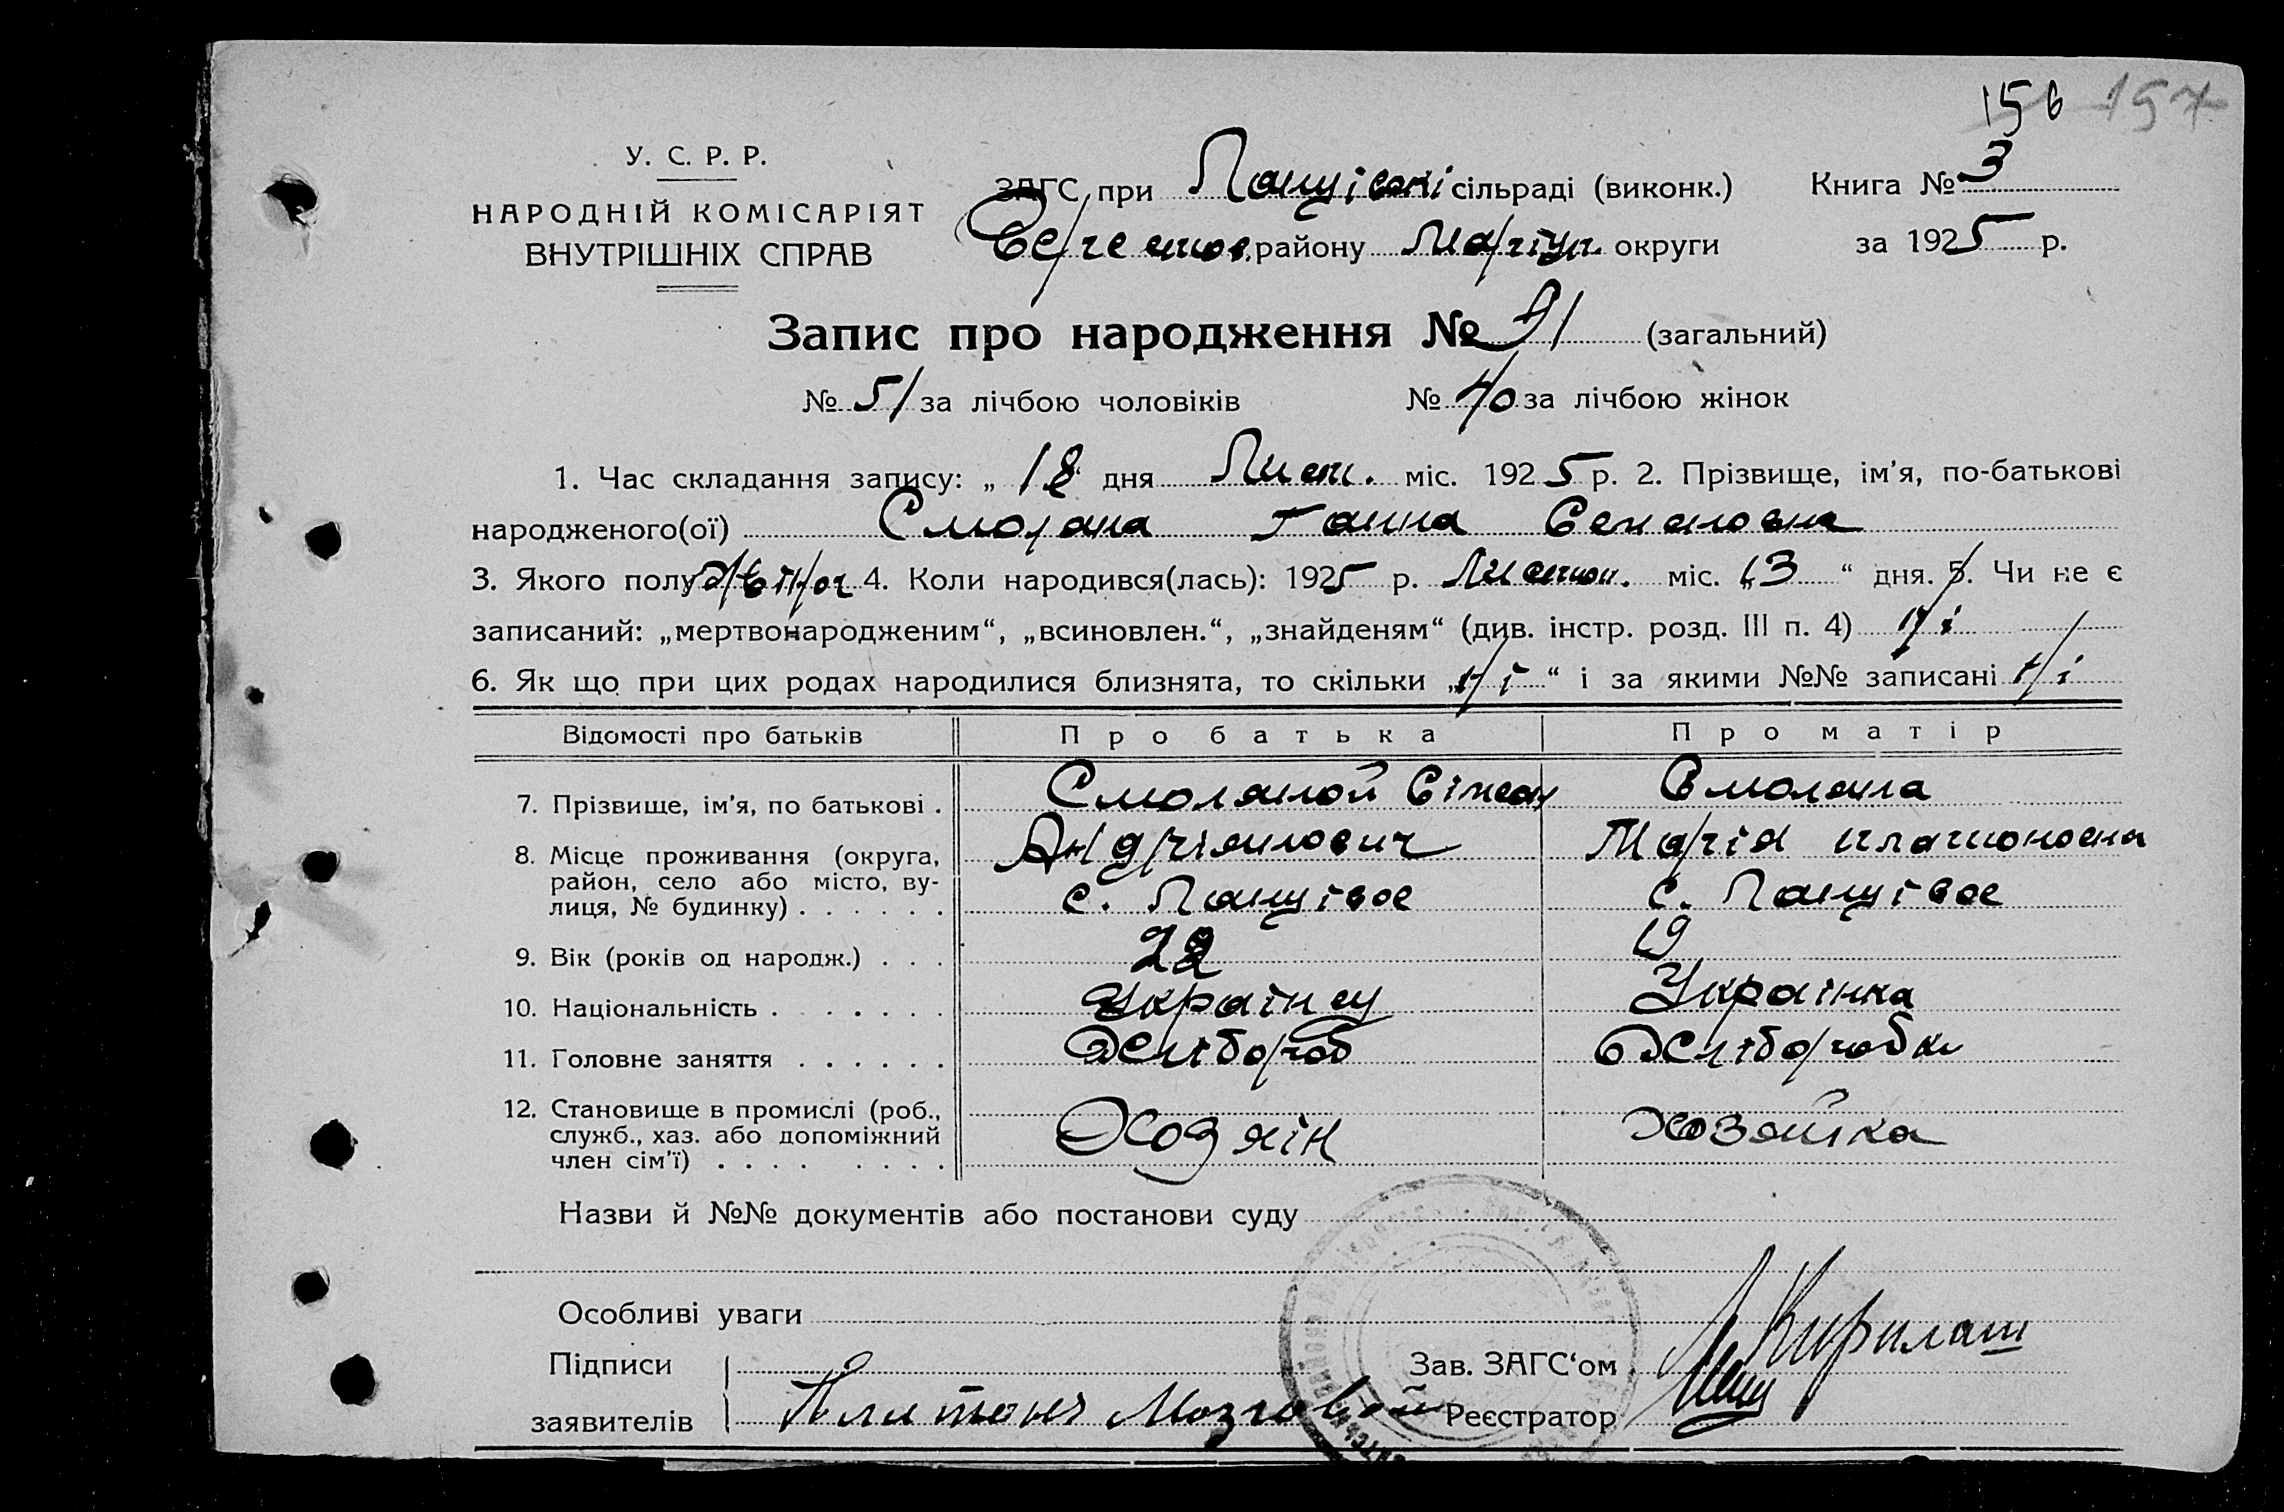 156 157
У. С. Р. Р.
НАРОДНІЙ КОМІСАРІЯТ
ВНУТРІШНІХ СПРАВ
ЗАГС при сільраді (виконк.) Книга № 3
району Маріуп. округи за 1925 р.
Запис про народження № 91 (загальний)
№ 51 за лічбою чоловіків № 40 за лічбою жінок
1. Час складання запису: „ 18 “ дня Лист. міс. 1925 р. 2. Прізвище, ім'я, по-батькові
народженого(ої) Ганна
3. Якого полу 4. Коли народився(лась): 1925 р. міс. „13 “ дня. 5. Чи не є
записаний: „мертвонародженим“, „всиновлен.“, „знайденям“ (див. інстр. розд. III п. 4) Ні
6. Як що при цих родах народилися близнята, то скільки „Ні“ і за якими №№ записані Ні
Відомості про батьків Про батька Про матір
7. Прізвище, ім'я, по батькові . Смоляной Сімеон Смоляна
Андріянович Марія Платоновна
8. Місце проживання (округа,
район, село або місто, ву-
лиця, № будинку) . . . . . . с. с.
9. Вік (років од народж.) . . . 22 19
10. Національність . . . . . . . Украінец Украінка
11. Головне заняття . . . . . . Хлібороб Хліборобка
12. Становище в промислі (роб.,
служб., хаз. або допоміжний
член сім'ї) . . . . . . . . Хозяін Хозяйка
Назви й №№ документів або постанови суду
Особливі уваги
Підписи Зав. ЗАГС‘ом
заявителів Платонъ Мозговой Реєстратор